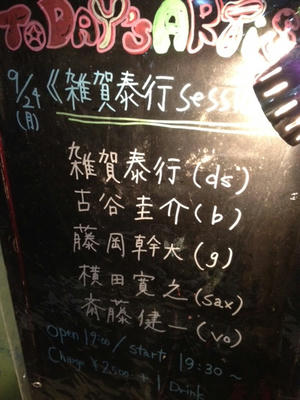 TODAY'S ARTIS
9/24
(月)
《雑賀泰行sess
雑賀泰行(ds)
古谷圭介(b)
藤岡幹大(g)
横田寛之(sax)
斎藤健一(vo)
Open 19:00/start 19:30〜
Charge ¥2,500 + 1 Drink